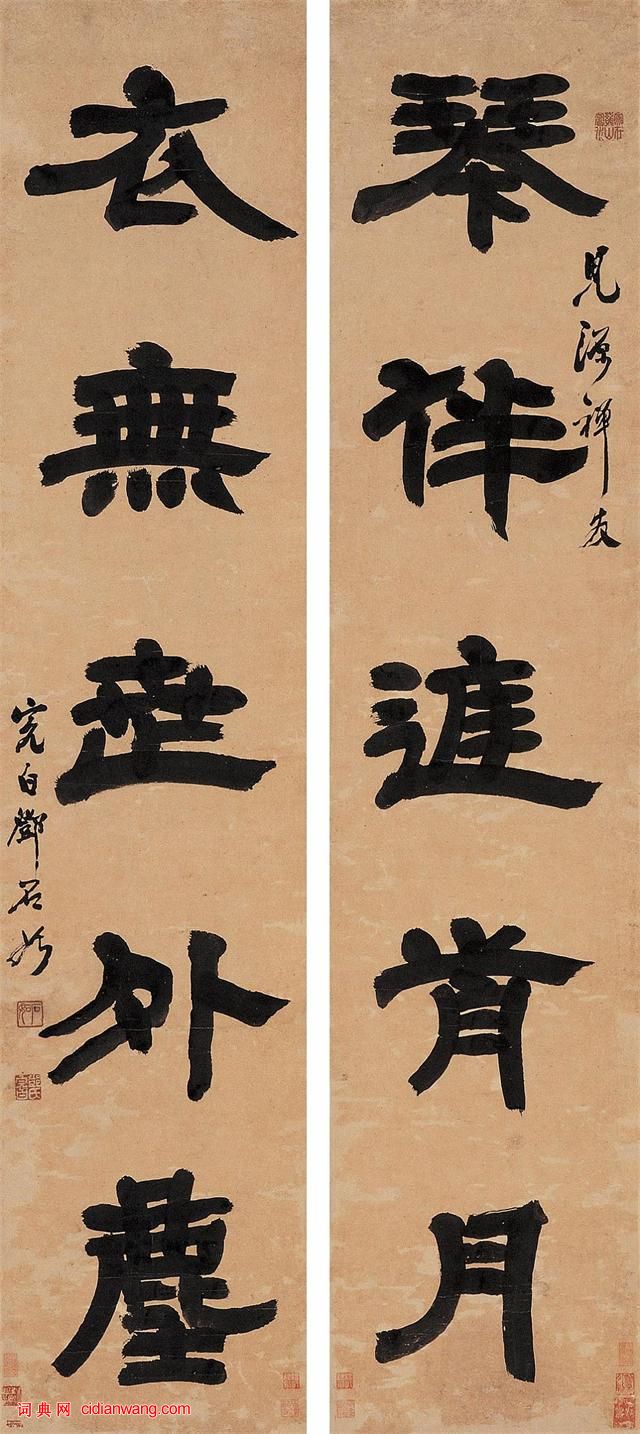 琴伴進宵月
見源禪友
衣無世外塵
完白鄧石如
词典网 cidianwang.com